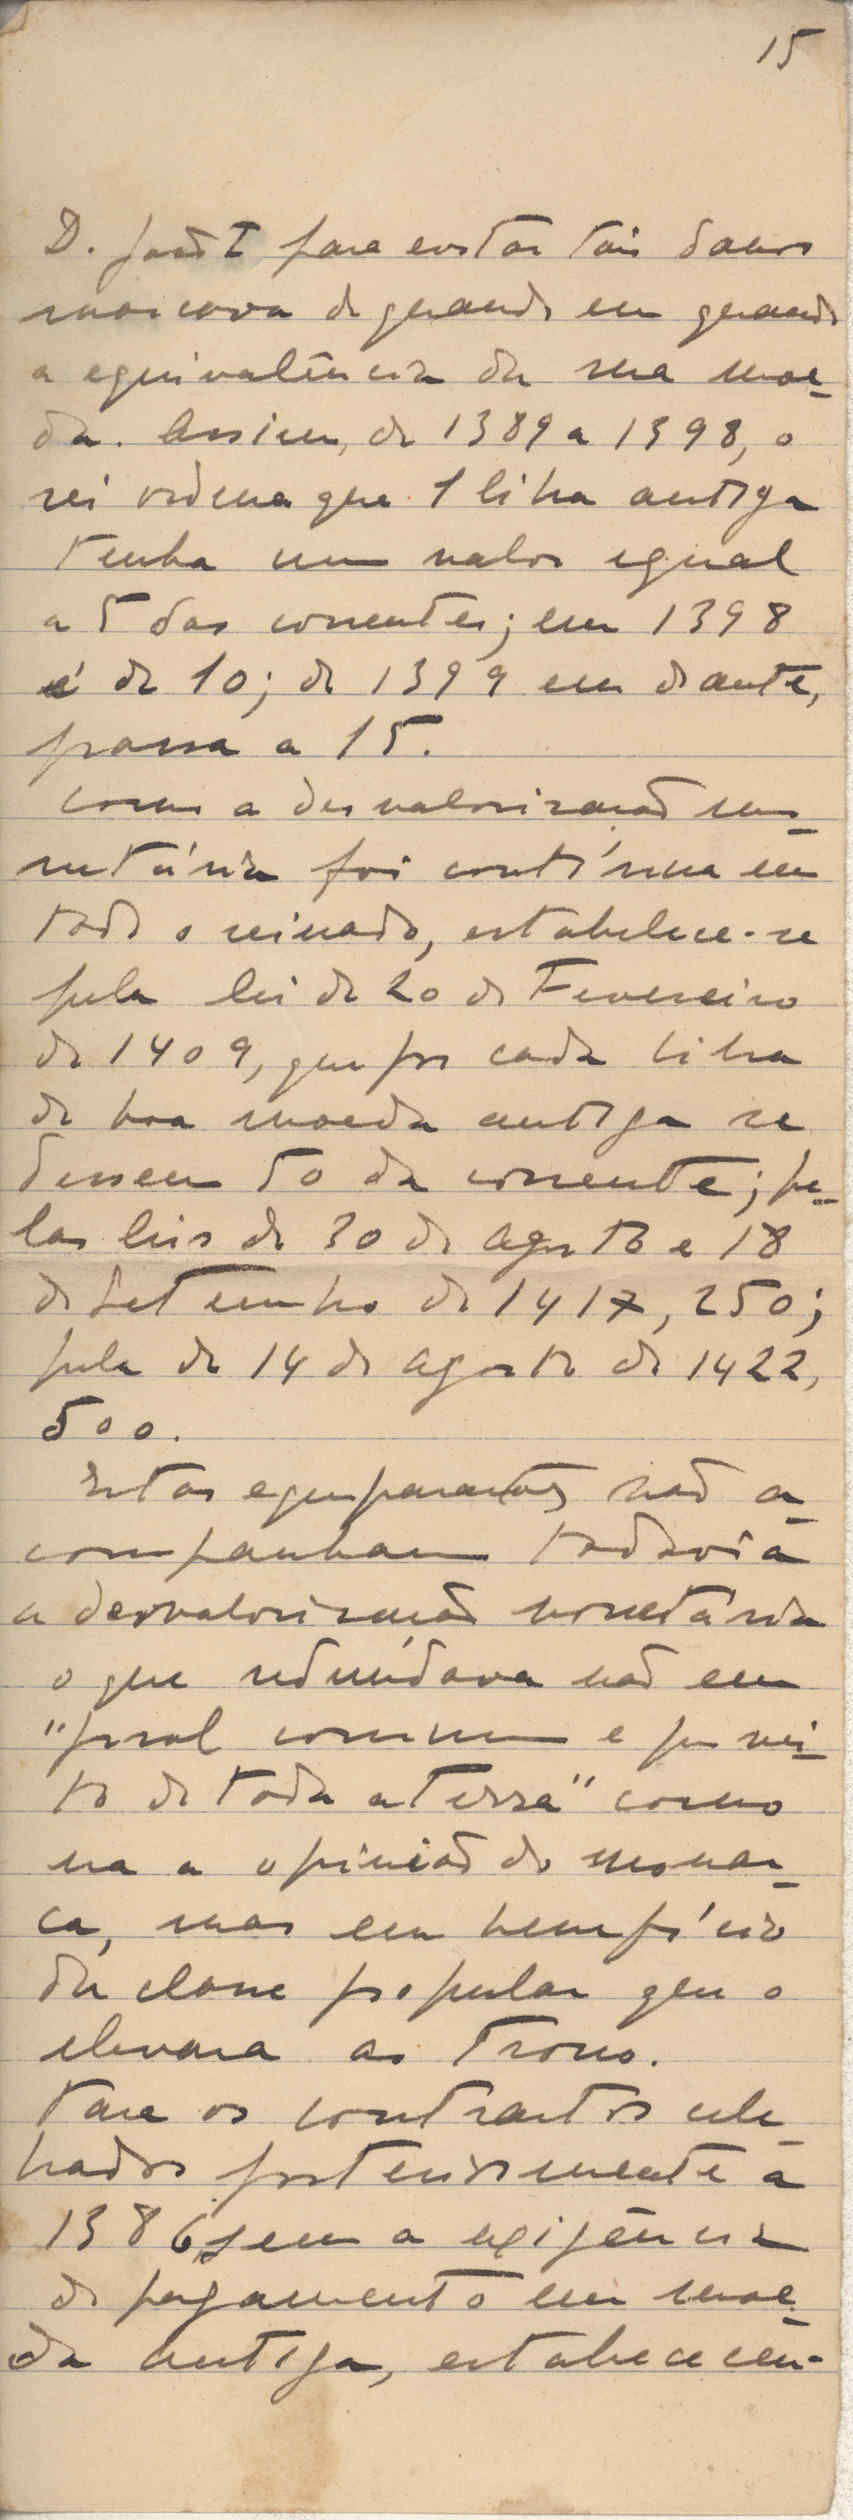 15
D. João I para evitar tais danos
marcava de quando em quando
a equivalência da sua moe-
da. Assim, de 1389 a 1398, o
rei ordena que 1 libra antiga
tenha um valor egual
a 5 das correntes; em 1398
é de 10; de 1399 em diante,
passa a 15.
Como a desvalorização mo-
netária foi contínua em
todo o reinado, estabelece-se
pela lei de 20 de Fevereiro
de 1409, que por cada libra
de boa moeda antiga se
dessem 50 da corrente; pe-
las leis de 30 de Agosto e 18
de Setembro de 1417, 250;
pela de 14 de Agosto de 1422,
500.
Estas equiparações não a-
companham todavia
a desvalorização monetária
o que redundava não em
"prol commum e provei-
to de toda a terra" como
era a opinião do monar-
ca, mas em benefício
da classe popular que o
elevara ao trono.
Para os contractos cele-
brados posteriormente a
1386, sem a exigência
de pagamento em moe-
da antiga, estabececeu-